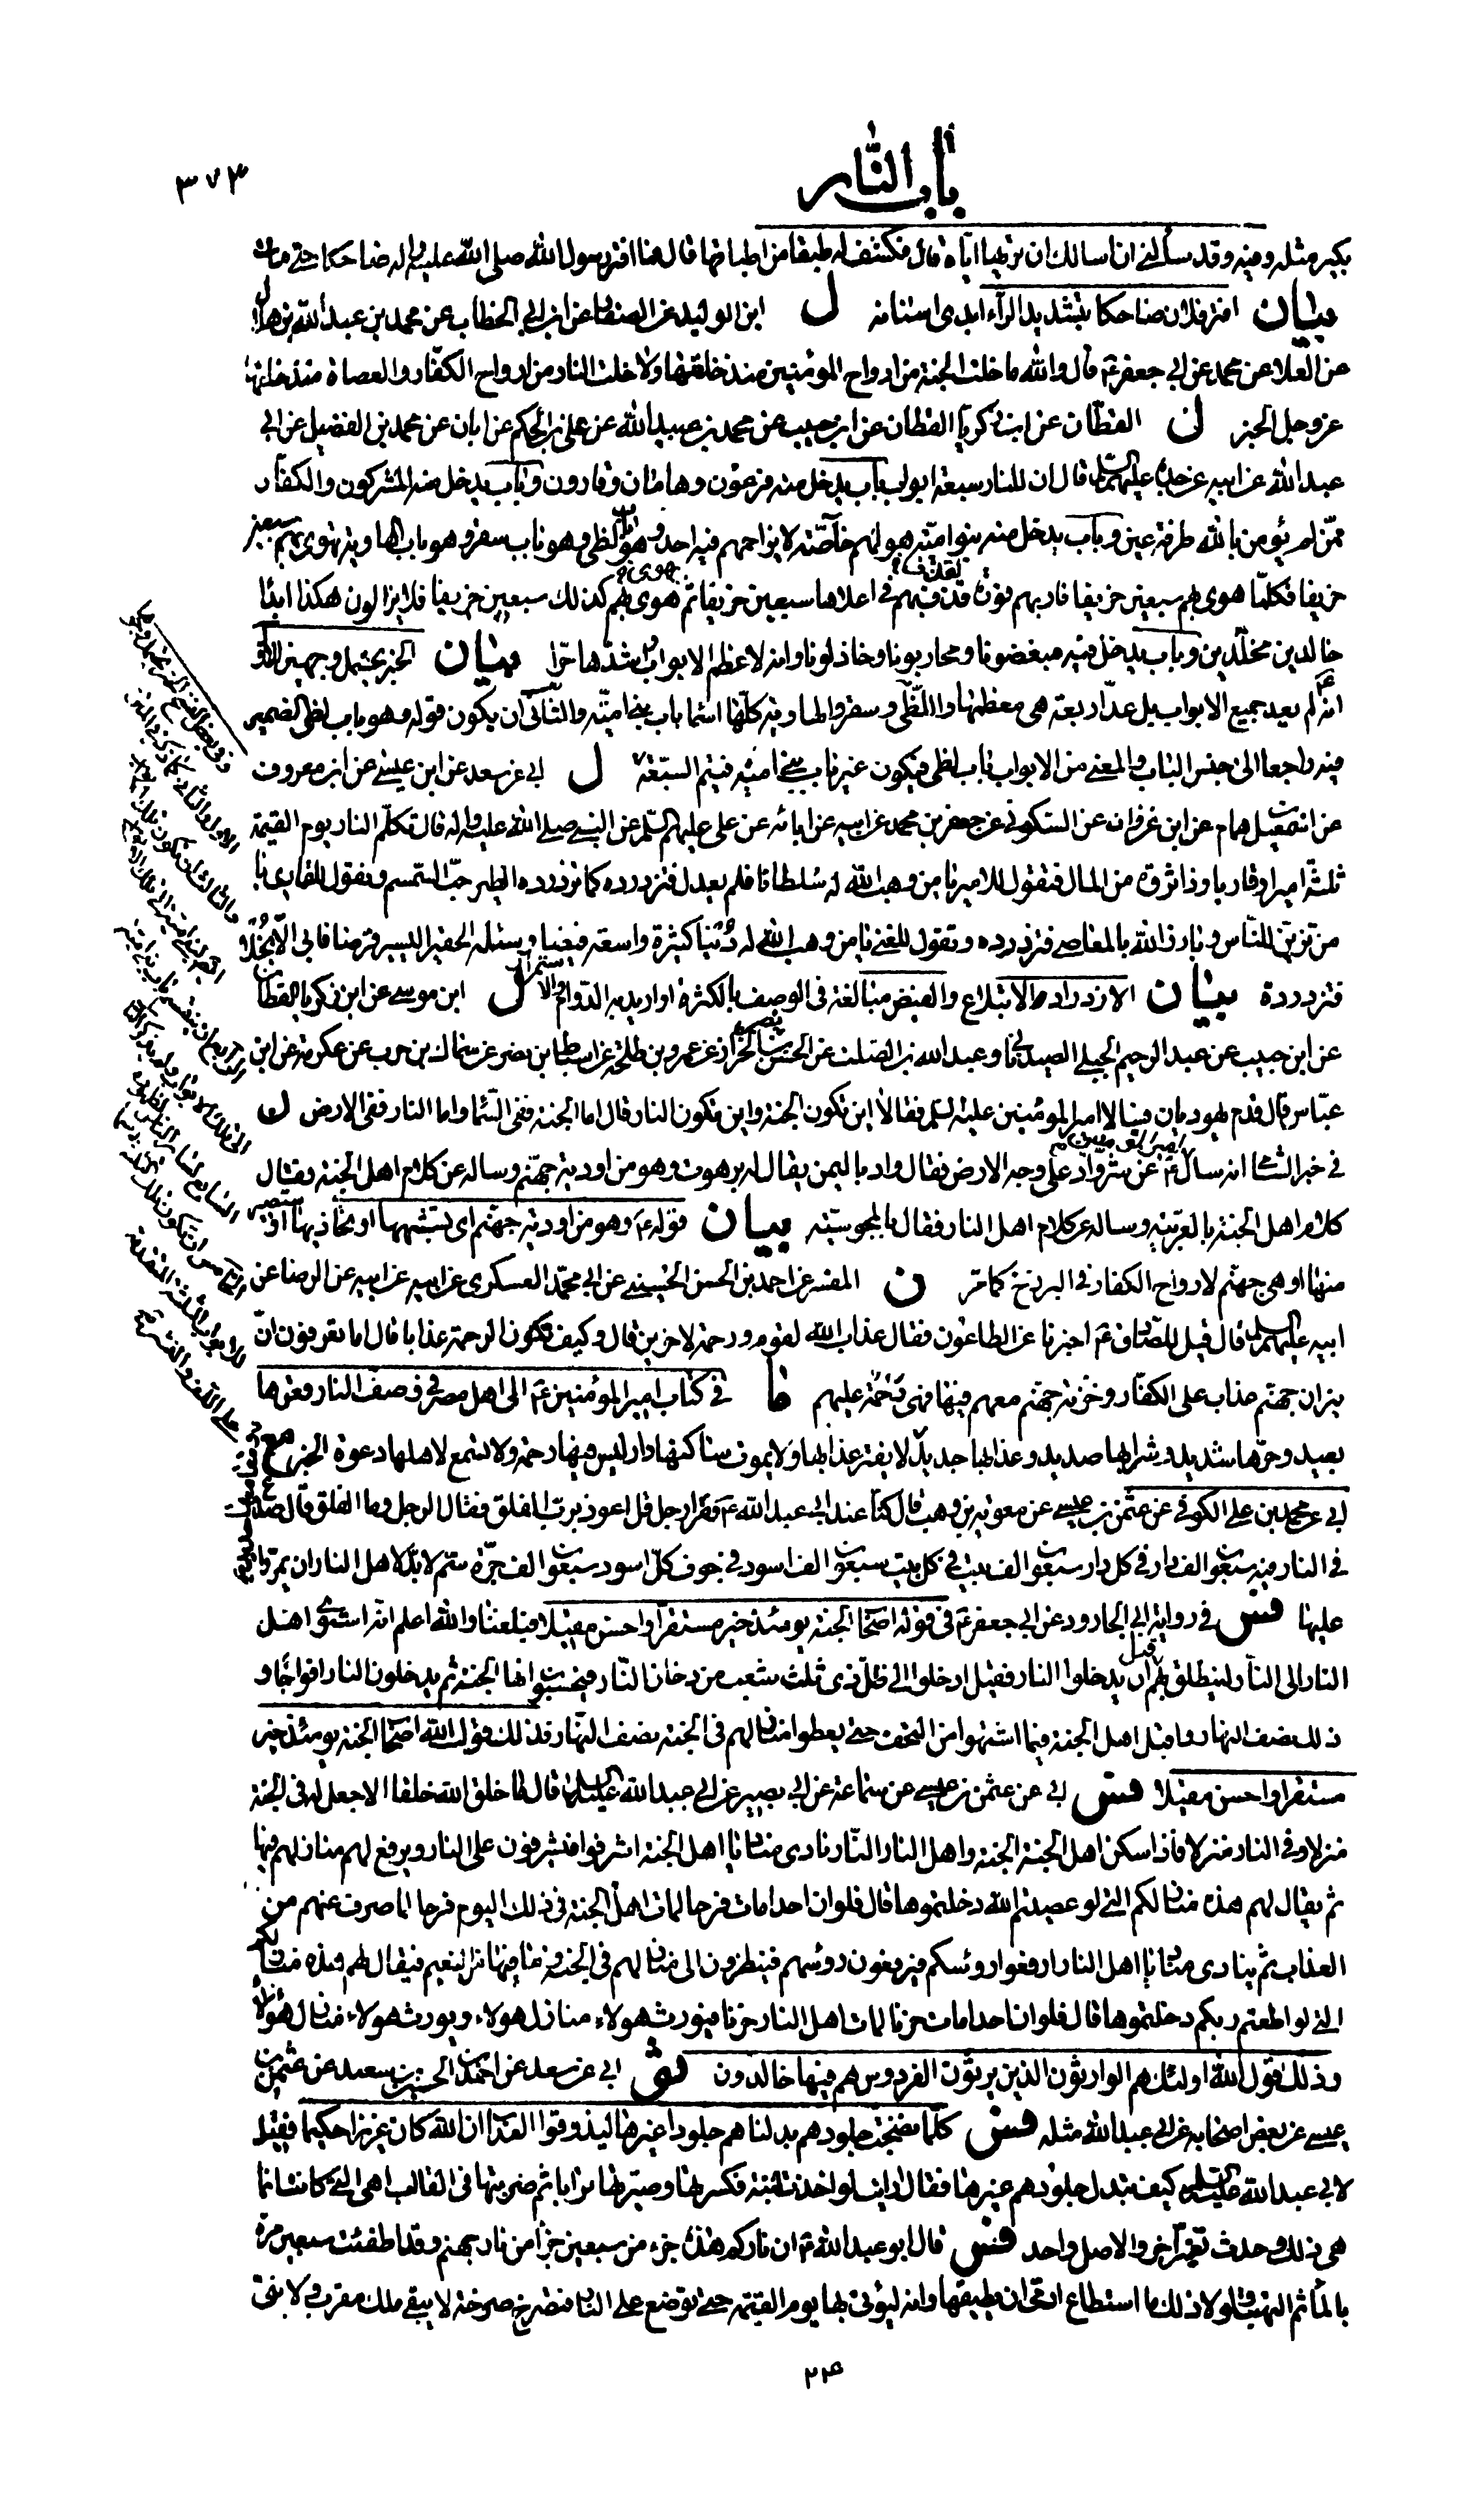 باب النار
٣٧٣
بكير مثله وفيه وقد سألني ان اسالك ان تريها اياه قال فكشف له طبقا من اطباقها قال فما افتر رسول الله صلى الله عليه واله ضاحكا حتى مات
بيان افتر فلان ضاحكا بتشديد الراء ابدى اسنانه ل ابن الوليد عن الصفار عن ابن ابي الخطاب عن محمد بن عبد الله بن هلال
عن العلا عن محمد عن ابي جعفر ع قال والله ما خلت الجنة من ارواح المؤمنين منذ خلقها ولا خلت النار من ارواح الكفار والعصاة منذ خلقها
عز وجل الخبر ل القطان عن ابن زكريا القطان عن ابن حبيب عن محمد بن عبيد الله عن علي بن الحكم عن ابان عن محمد بن الفضيل عن ابي
عبد الله عن ابيه عن جده عليهم السلم قال ان للنار سبعة ابواب باب يدخل منه فرعون وهامان وقارون وباب يدخل منه المشركون والكفار
ممن لم يؤمن بالله طرفة عين وباب يدخل منه بنو امية هو لهم خاصة لا يزاحمهم فيه احد وهو باب لظى وهو باب سقر وهو باب الهاوية تهوى بهم سبعين
خريفا فكلما هوى بهم سبعين خريفا فار بهم فورة قذف بهم في اعلاها سبعين خريفا ثم هوى بهم كذلك سبعين خريفا فلا يزالون هكذا ابدا
خالدين مخلدين وباب يدخل فيه مبغضونا ومحاربونا وخاذلونا وانه لاعظم الابواب واشدها حرا بيان الخبر يحتمل وجهين الاول
انه لم يعد جميع الابواب بل عد اربعة هي معظمها واللظى وسقر والهاوية كلها اسماء باب بني امية والثاني ان يكون قوله وهو باب لظى الضمير
فيه راجعا الى جنس الباب والمعنى من الابواب باب لظى فيكون غير باب بني امية فيتم السبعة ل ابي عن سعد عن ابن عيسى عن ابن معروف
عن اسمعيل بن همام عن ابن غزوان عن السكوني عن جعفر بن محمد عن ابيه عن ابائه عن علي عليهم السلم عن النبي صلى الله عليه واله قال تكلم النار يوم القيمة
ثلثة اميرا وقاريا وذا ثروة من المال فتقول للامير يا من وهب الله له سلطانا فلم يعدل فتزدرده كما تزدرد الطير حب السمسم وتقول للقاري يا
من تزين للناس وبارز الله بالمعاصي فتزدرده وتقول للغني يا من وهب الله له دنيا كثيرة واسعة فيضا وسئله الحقير اليسير قرضا فابى الا بخلا
فتزدرده بيان الازدراد الابتلاع والفيض مبالغة في الوصف بالكثرة او اريد به الدوام والاستمرار ل ابن موسى عن ابن زكريا القطان
عن ابن حبيب عن عبد الرحيم الجبلي الصيدناني وعبد الله بن الصلت عن الحسن بن نصر الخزاز عن عمرو بن طلحة عن اسباط بن نصر عن سماك بن حرب عن عكرمة عن ابن
عباس قال قدم يهوديان فسالا امير المؤمنين عليه السلم فقالا اين تكون الجنة واين تكون النار قال اما الجنة ففي السماء واما النار ففي الارض ن
في خبر الشامي انه سال امير المؤمنين ع عن شر واد على وجه الارض فقال واد باليمن يقال له برهوت وهو من اودية جهنم وساله عن كلام اهل الجنة فقال
كلام اهل الجنة بالعربية وساله عن كلام اهل النار فقال بالمجوسية بيان قوله ع وهو من اودية جهنم اي تشبهها او تحاذيها او ستصير
منها او هي جهنم لارواح الكفار في البرزخ كما مر ن المفسر عن احمد بن الحسن الحسيني عن ابي محمد العسكري عن ابيه عن ابيه عن الرضا عن
ابيه عليهم السلم قال قيل للصادق ع اخبرنا عن الطاعون فقال عذاب الله لقوم ورحمة لاخرين قال وكيف تكون الرحمة عذابا قال اما تعرفون ان
نيران جهنم عذاب على الكفار وخزنة جهنم معهم فيها فهي رحمة عليهم ما في كتاب امير المؤمنين ع الى اهل مصر في صف النار قعرها
بعيد وحرها شديد وشرابها صديد وعذابها جديد لا يفتر عذابها ولا يموت ساكنها دار ليس فيها رحمة ولا تسمع لاهلها دعوة الخبر مع
ابي عن محمد بن علي الكوفي عن عثمن بن عيسى عن معوية بن وهب قال كنا عند ابي عبد الله ع فقرا رجل قل اعوذ برب الفلق فقال الرجل وما الفلق قال صدع
في النار فيه سبعون الف دار في كل دار سبعون الف بيت في كل بيت سبعون الف اسود في جوف كل اسود سبعون الف جرة سم لا بد لاهل النار ان يمروا
عليها فس في رواية ابي الجارود عن ابي جعفر ع في قوله اصحاب الجنة يومئذ خير مستقرا واحسن مقيلا فبلغنا والله اعلم انه اذا استوى اهل
النار الى النار لينطلق بهم قبل ان يدخلوا النار فقيل ادخلوا الى ظل ذي ثلث شعب من دخان النار فيحسبون انها الجنة ثم يدخلون النار افواجا و
ذلك نصف النهار واقبل اهل الجنة فيما اشتهوا من التحف حتى يعطوا منازلهم في الجنة نصف النهار فذلك قول الله اصحاب الجنة يومئذ خير
مستقرا واحسن مقيلا فس ابي عن عثمن بن عيسى عن سماعة عن ابي بصير عن ابي عبد الله عليه السلم قال ما خلق الله خلقا الا جعل له في الجنة
منزلا وفي النار منزلا فاذا سكن اهل الجنة الجنة واهل النار النار نادى مناد يا اهل الجنة اشرفوا فيشرفون على النار ويرفع لهم منازلهم فيها
ثم يقال لهم هذه منازلكم التي لو عصيتم الله دخلتموها قال فلو ان احدا مات فرحا لمات اهل الجنة في ذلك اليوم فرحا لما صرف عنهم من
العذاب ثم ينادي مناد يا اهل النار ارفعوا رؤسكم فيرفعون رؤسهم فينظرون الى منازلهم في الجنة وما فيها من النعيم فيقال لهم هذه منازلكم
التي لو اطعتم ربكم دخلتموها قال فلو ان احدا مات حزنا لمات اهل النار حزنا فيورث هؤلاء منازل هؤلاء ويورث هؤلاء منازل هؤلاء
وذلك قول الله اولئك هم الوارثون الذين يرثون الفردوس هم فيها خالدون ثو ابي عن سعد عن احمد بن الحسين بن سعيد عن عثمن بن
عيسى عن بعض اصحابه عن ابي عبد الله مثله فس كلما نضجت جلودهم بدلناهم جلودا غيرها ليذوقوا العذاب ان الله كان عزيزا حكيما فقيل
لابي عبد الله عليه السلم كيف تبدل جلودهم غيرها فقال ارايت لو اخذت لبنة فكسرتها وصيرتها ترابا ثم ضربتها في القالب اهي التي كانت انما
هي ذلك وحدث تغير اخر والاصل واحد فس قال ابو عبد الله ع ان ناركم هذه جزء من سبعين جزأ من نار جهنم وقد اطفئت سبعين مرة
بالماء ثم التهبت ولولا ذلك ما استطاع ادمي ان يطيقها وانه ليؤتى بها يوم القيمة حتى توضع على النار فتصرخ صرخة لا يبقى ملك مقرب ولا نبي